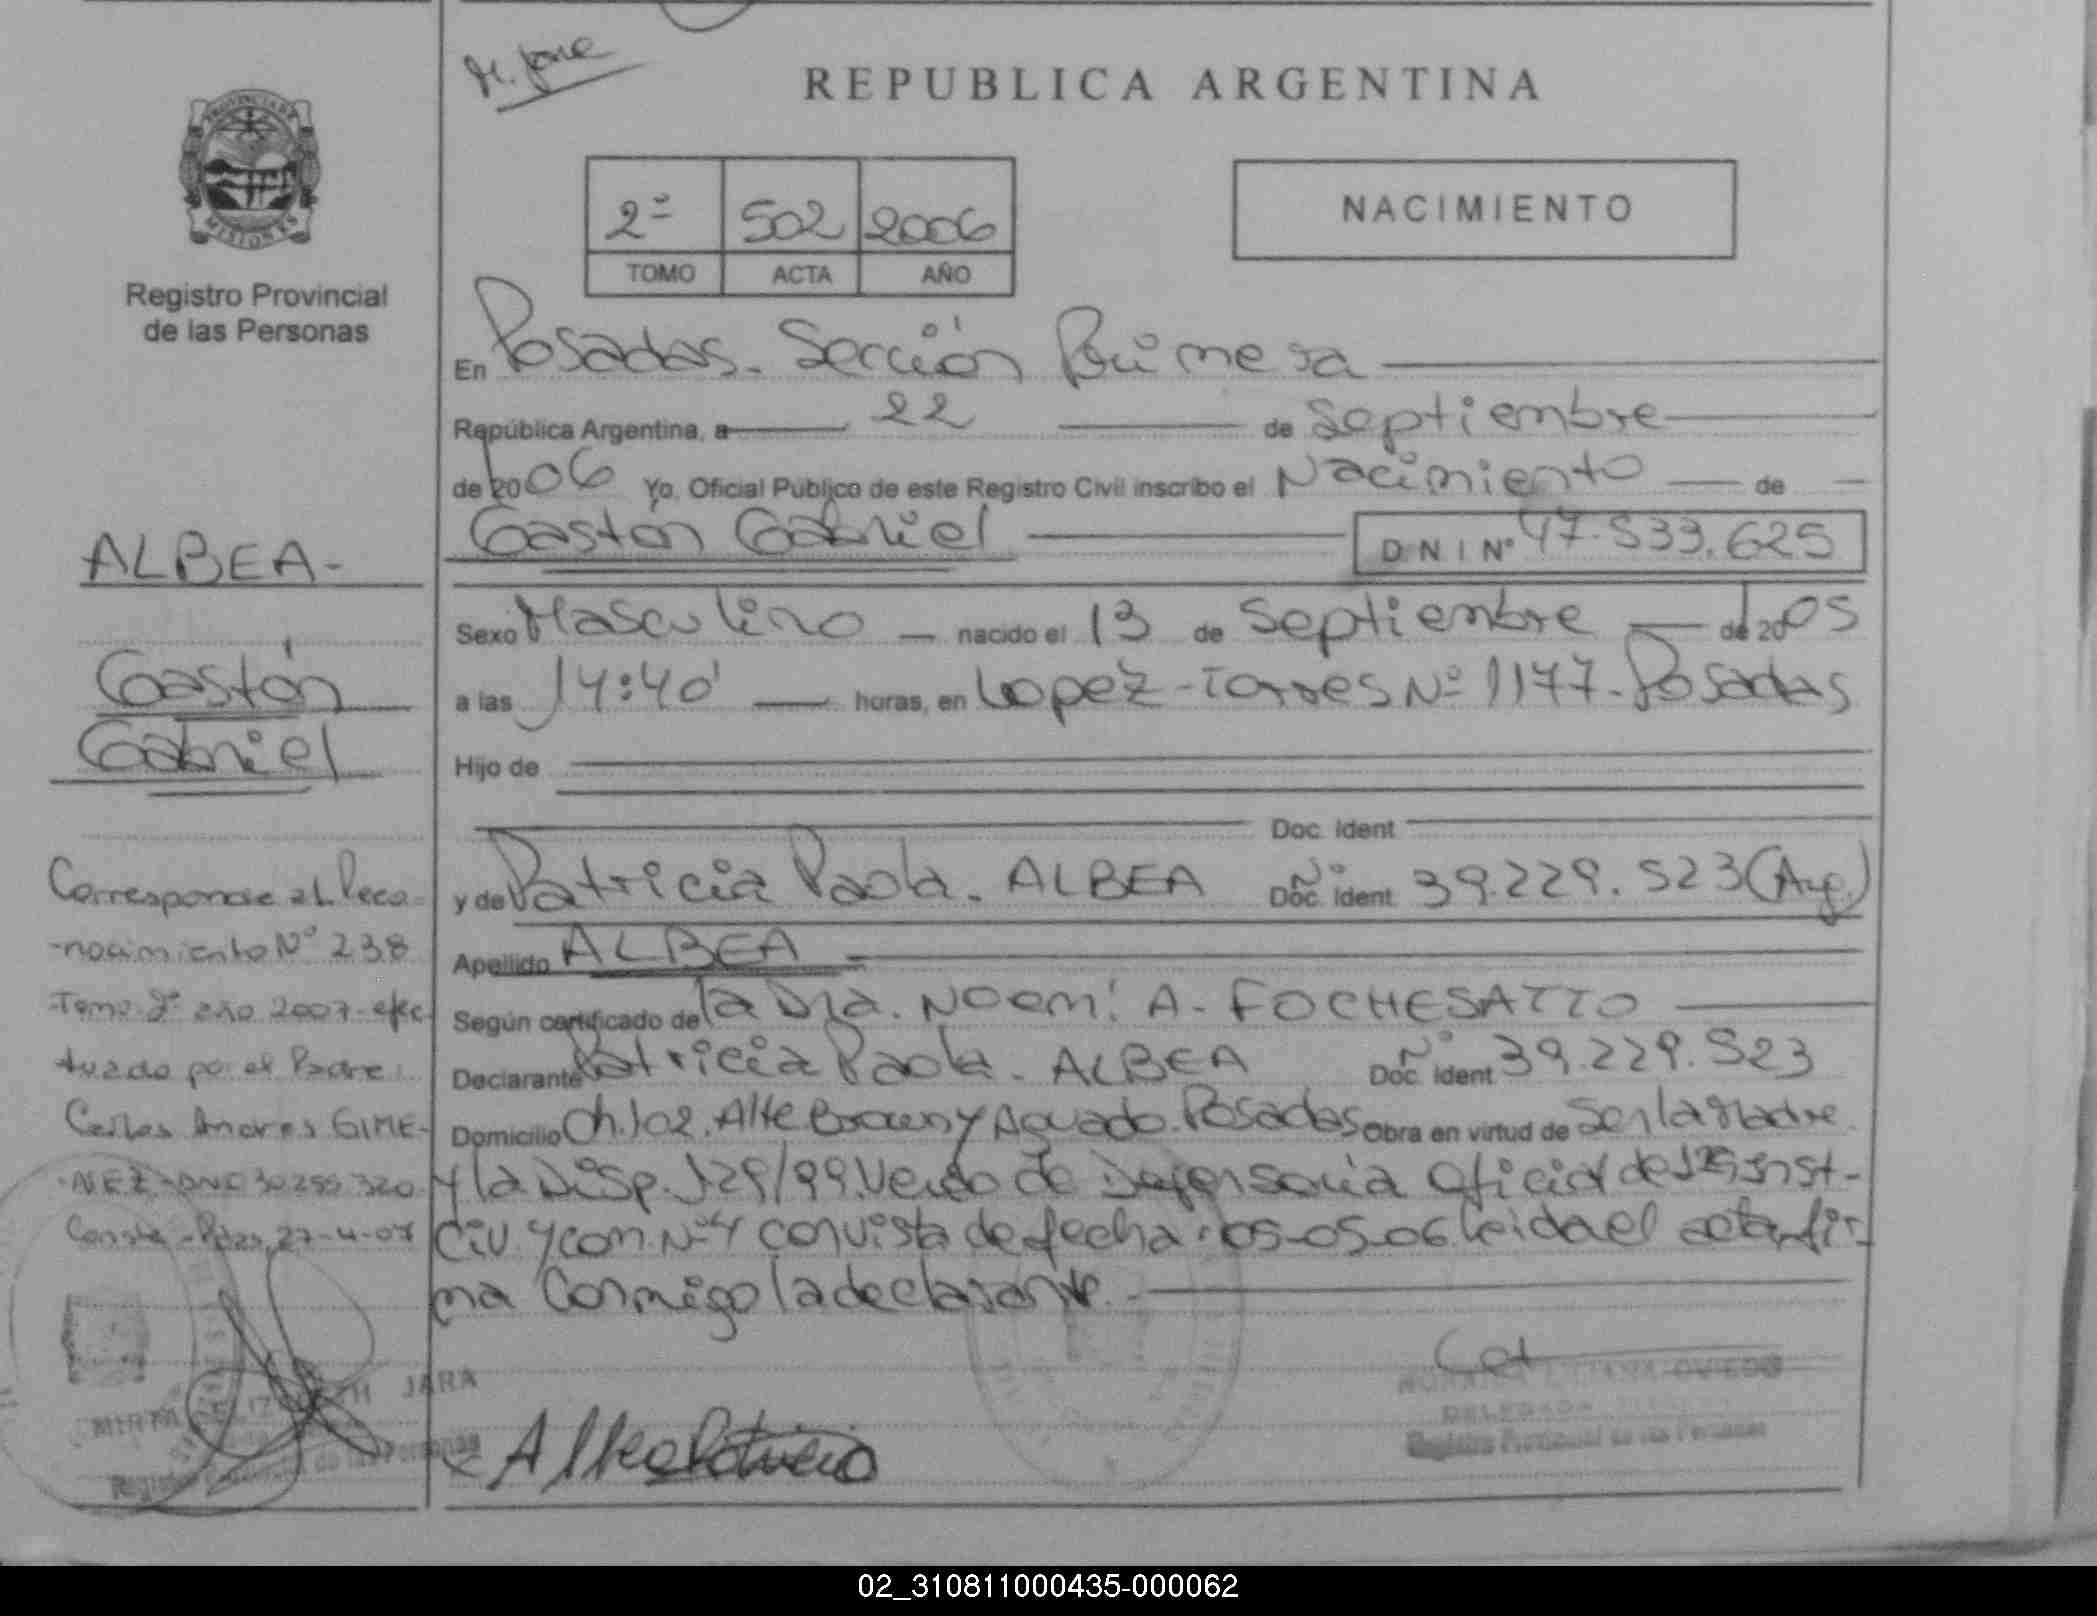 M. Jose
REPUBLICA ARGENTINA
PROVINCIA DE
MISIONES
Registro Provincial
de las Personas
2º 502 2006
TOMO ACTA AÑO
NACIMIENTO
En Posadas. Sección Primera
República Argentina, a 22 de Septiembre
de 2006 Yo, Oficial Público de este Registro Civil inscribo el Nacimiento de
Gastón Gabriel DNI Nº 47.533.625
Sexo Masculino nacido el 13 de Septiembre de 2005
a las 14:40' horas, en Lopez-Torres Nº 1177-Posadas
Hijo de
Doc. Ident
y de Patricia Paola. ALBEA Nº Doc. Ident 39.229.523 (Arg.)
Apellido ALBEA
Según certificado de la Dra. Noemí A. FOCHESATTO
Declarante Patricia Paola. ALBEA Nº Doc. Ident 39.229.523
Domicilio Ch.102. Alte Brown y Aguado. Posadas Obra en virtud de Ser la Madre
y la Disp. 129/99. de Defensoria Oficial de Inst-
Civ. y com. Nº4 con vista de fecha: 05-05-06 leida el acta, fir-
ma Conmigo la declarante.
ALBEA-
Gastón
Gabriel
Corresponde al Reco-
-nocimiento Nº 238
Tomo 2º año 2007-efec
tuado por el Padre:
Carlos Andres GIME-
NEZ-DNI 30255320
Conste-Pdas, 27-4-07
MIRTA ELIZABETH JARA
Registro Provincial de las Personas
Albea Patricia
LILIANA OVIEDO
DELEGADA
Registro Provincial de las Personas
02_310811000435-000062